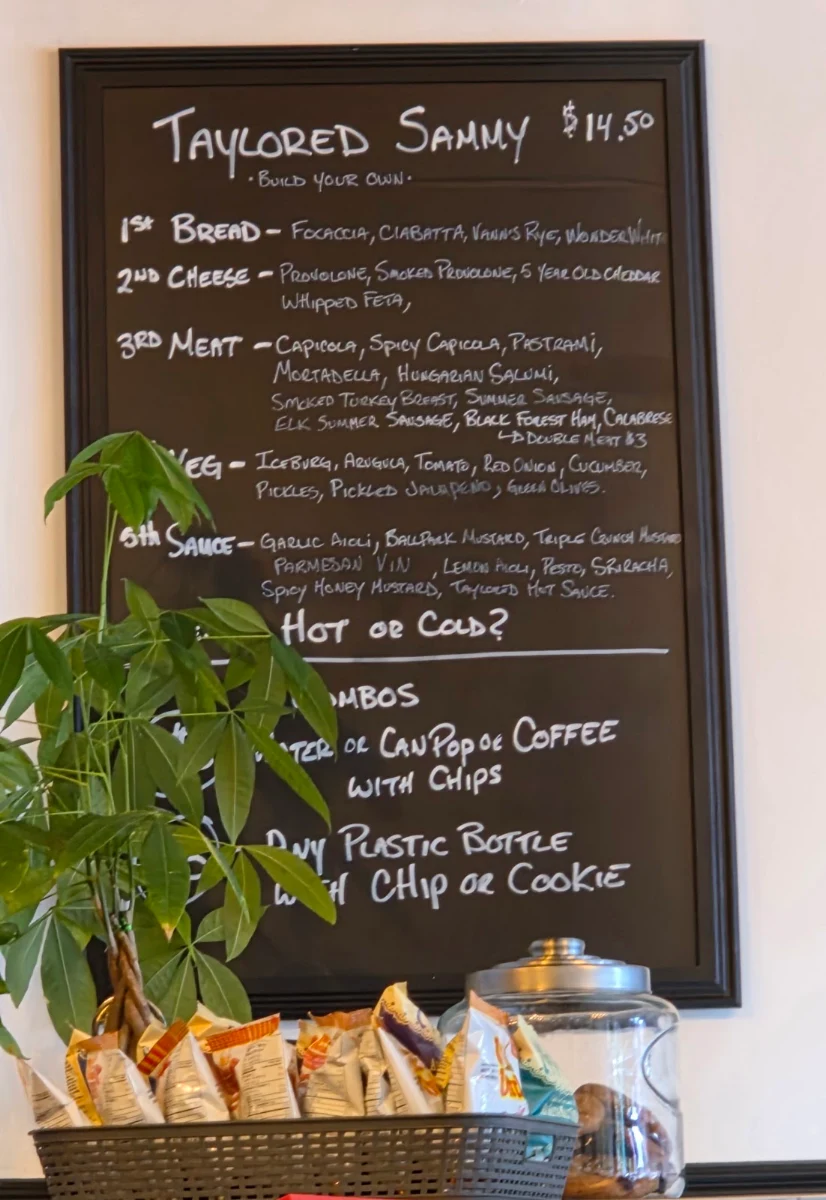 TAYLORED SAMMY $14.50
· BUILD YOUR OWN ·
1ST BREAD - FOCACCIA, CIABATTA, VANN'S RYE, WONDER WHIT
2ND CHEESE - PROVOLONE, SMOKED PROVOLONE, 5 YEAR OLD CHEDDAR
WHIPPED FETA,
3RD MEAT - CAPICOLA, SPICY CAPICOLA, PASTRAMI,
MORTADELLA, HUNGARIAN SALUMI,
SMOKED TURKEY BREAST, SUMMER SAUSAGE,
ELK SUMMER SAUSAGE, BLACK FOREST HAM, CALABRESE
↳ DOUBLE MEAT $3
VEG - ICEBURG, ARUGULA, TOMATO, RED ONION, CUCUMBER,
PICKLES, PICKLED JALAPENO, GREEN OLIVES.
5th SAUCE - GARLIC AIOLI, BALLPARK MUSTARD, TRIPLE CRUNCH MUSTARD
PARMESAN VIN , LEMON AIOLI, PESTO, SRIRACHA,
SPICY HONEY MUSTARD, TAYLORED HOT SAUCE.
HOT OR COLD?
OMBOS
ATER OR CAN POP OR COFFEE
WITH CHIPS
ANY PLASTIC BOTTLE
WITH CHIP OR COOKIE